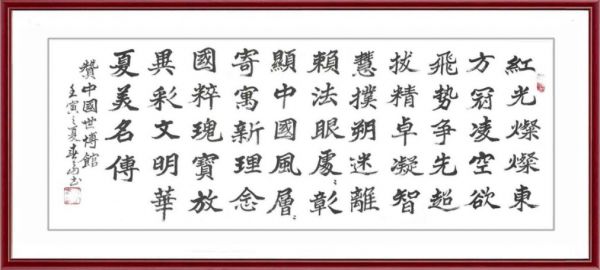 紅光燦燦東
方冠凌空欲
飛勢争先超
拔精卓凝智
慧撲朔迷離
賴法眼處〻彰
顯中國風層〻
寄寓新理念
國粹瑰寶放
異彩文明華
夏美名傳
贊中國世博館
壬寅之夏春